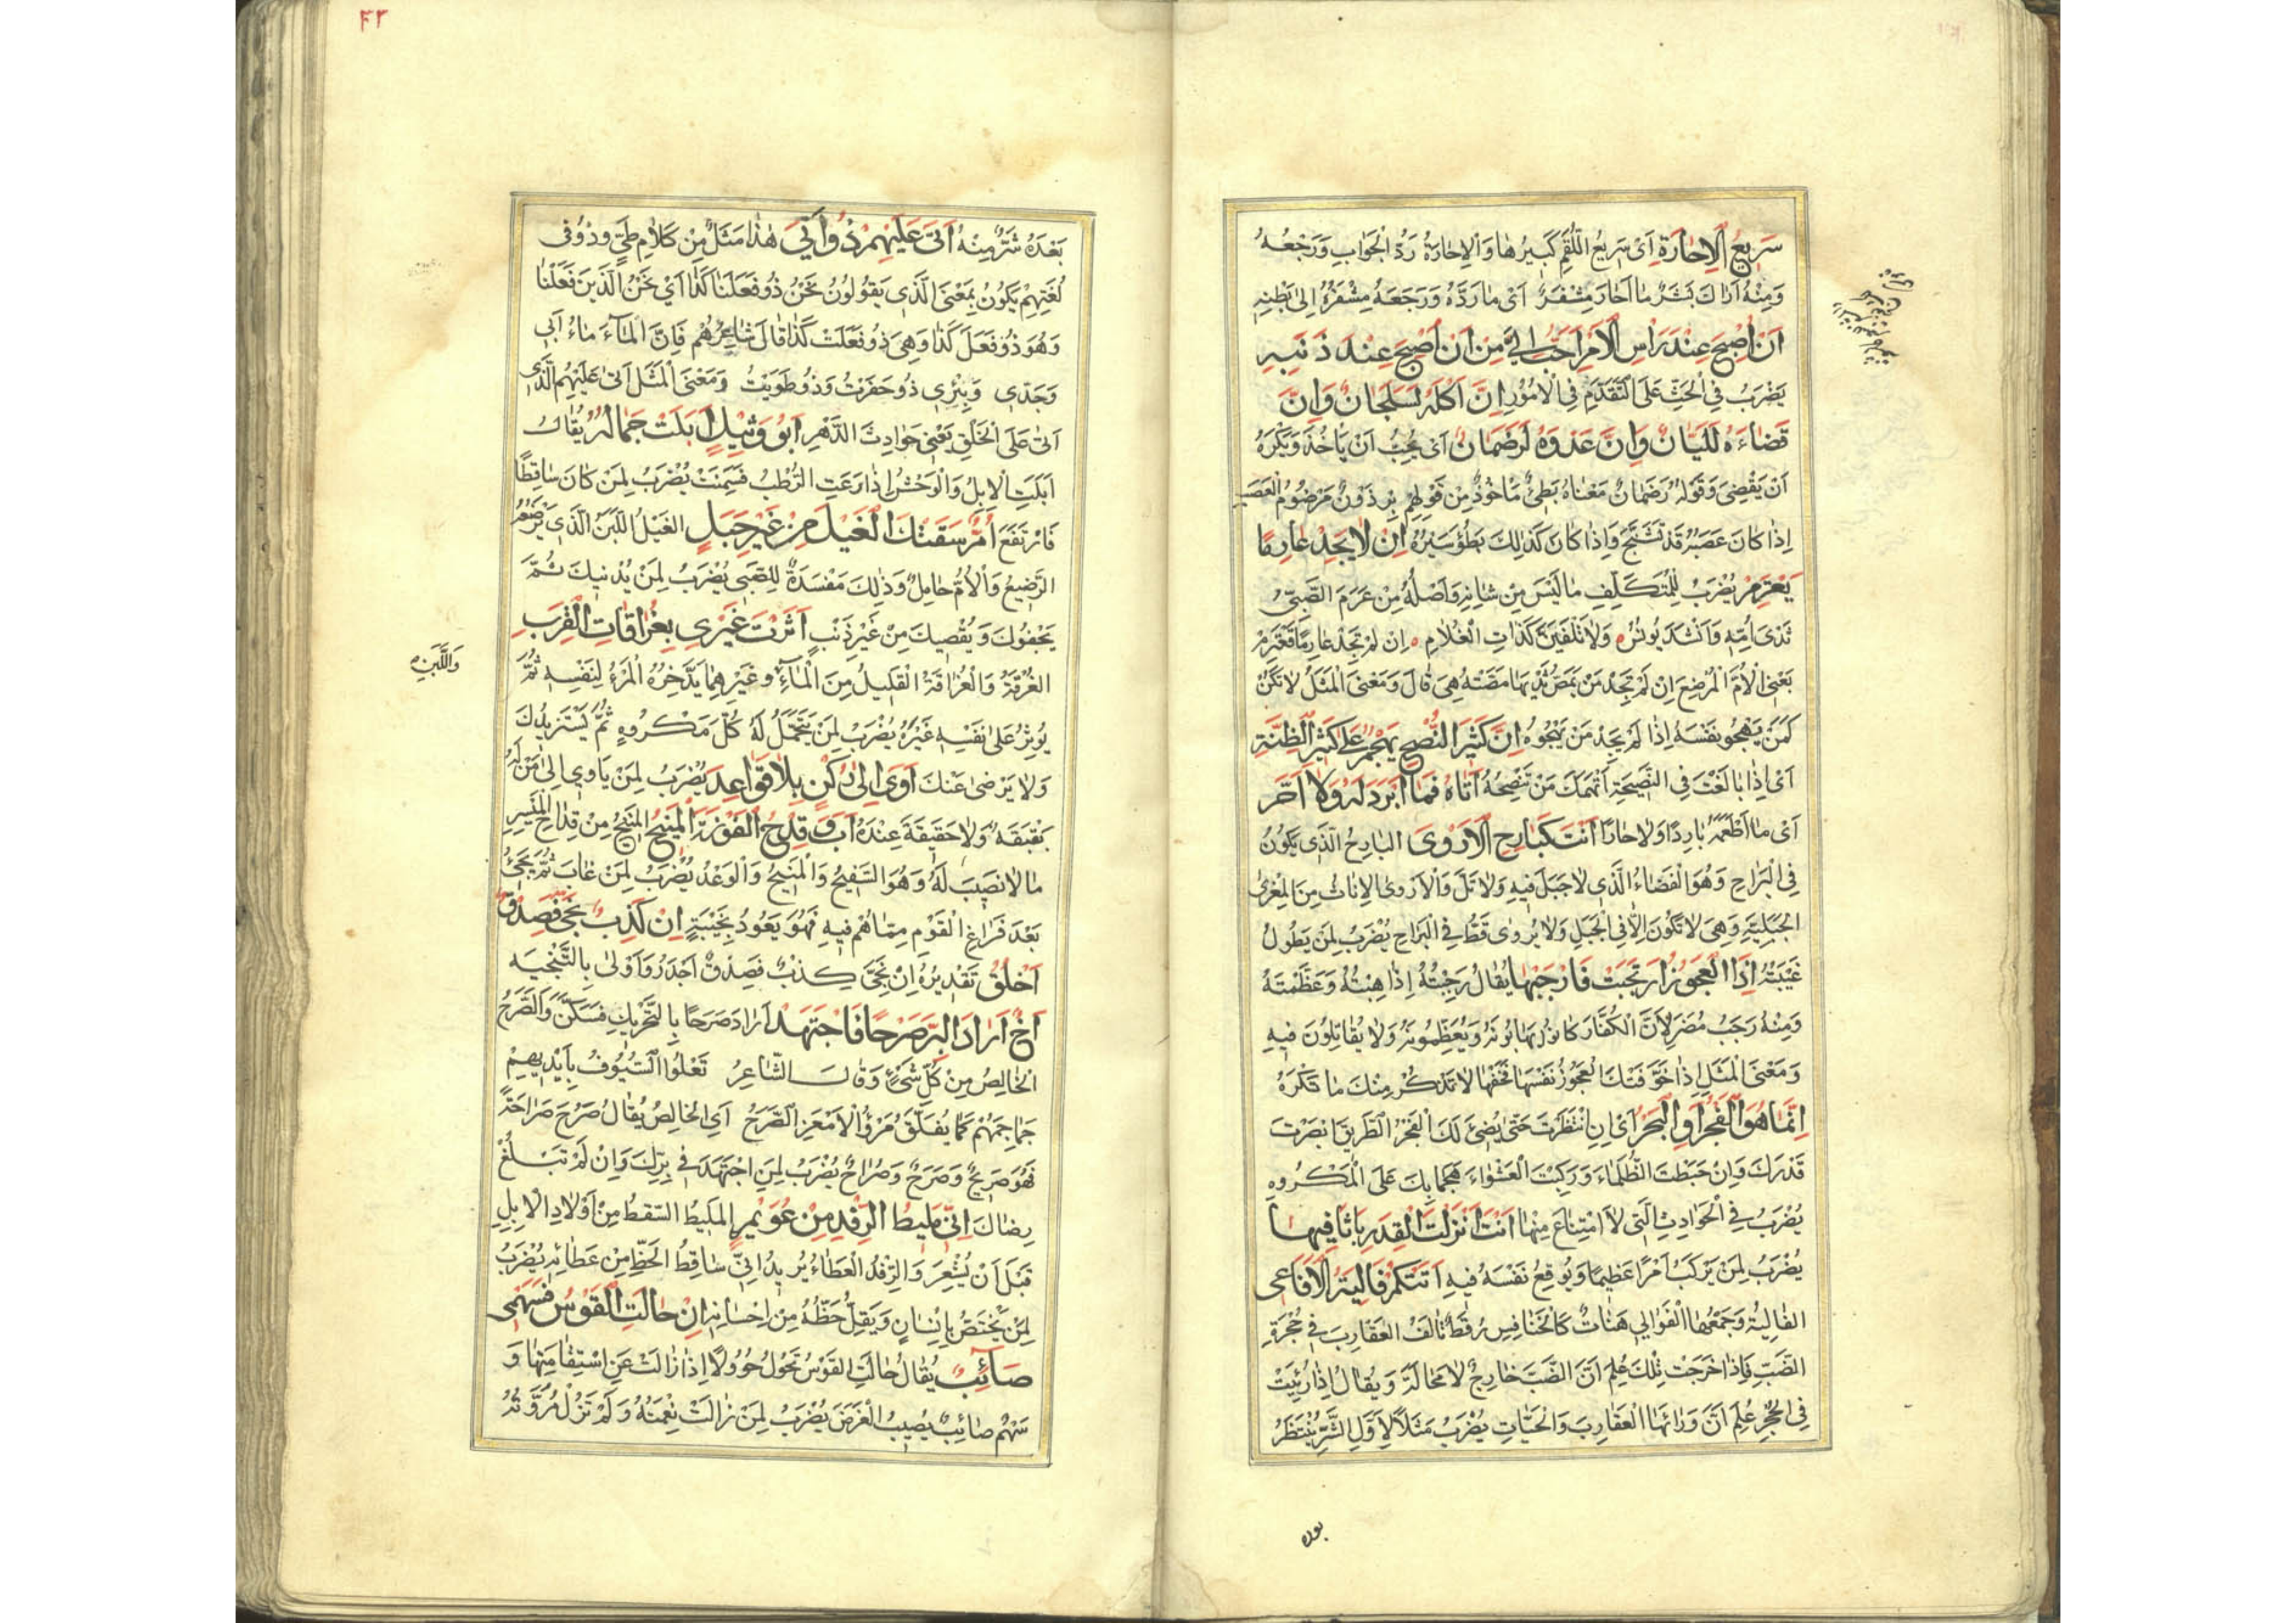 سَرِيعُ الْاِحَارَةِ اَىْ سَرِيعُ اللُّقَمِ كَبِيرُهَا وَالْاِحَارَةُ رَدُّ الْجَوَابِ وَرَجْعُهُ
وَمِنْهُ اَرَاكَ بَشَرٌ مَا اَحَارَ مِشْفَرٌ اَىْ مَا رَدَّهُ وَرَجَعَهُ مِشْفَرُهُ اِلىٰ بَطْنِهِ
اَنْ اُصْبِحَ عِنْدَ رَاْسِ الْاَمْرِ اَحَبُّ اِلَىَّ مِنْ اَنْ اُصْبِحَ عِنْدَ ذَنَبِهِ
يُضْرَبُ فِى الْحَثِّ عَلَى التَّقَدُّمِ فِى الْاُمُورِ اِنَّ اَكْلَهُ لَسَلَجَانٌ وَاِنَّ
قَضَاءَهُ لَلَيَّانٌ وَاِنَّ عَدْوَهُ لَرَضَمَانٌ اَىْ يُحِبُّ اَنْ يَاْخُذَ وَيَكْرَهُ
اَنْ يَقْضِىَ وَقَوْلُهُ رَضَمَانٌ مَعْنَاهُ بَطِىٌ مَاخُوذٌ مِنْ قَوْلِهِمْ بِرْذَوْنٌ مَرْضُومُ الْعَصَبِ
اِذَا كَانَ عَصَبُهُ قَدْ تَشَنَّجَ وَاِذَا كَانَ كَذٰلِكَ بَطُؤَ سَيْرُهُ اِنْ لَا يَجِدْ عَارِمًا
يَعْتَرِمْ يُضْرَبُ لِلْمُتَكَلِّفِ مَا لَيْسَ مِنْ شَانِهِ وَاَصْلُهُ مِنْ عَرَمَ الصَّبِىُّ
ثَدْىَ اُمِّهِ وَاَنْشَدَ يُونُسُ وَلَا تُلْفَيَنَّ كَذَاتِ الْغُلَامِ اِنْ لَمْ تَجِدْ عَارِمًا تَعْتَرِمْ
يَعْنِى الْاُمَّ الْمُرْضِعَ اِنْ لَمْ تَجِدْ مَنْ يَمَصُّ ثَدْيَهَا مَصَّتْهُ هِىَ قَالَ وَمَعْنَى الْمَثَلِ لَا تَكُنْ
كَمَنْ يَهْجُو نَفْسَهُ اِذَا لَمْ يَجِدْ مَنْ يَهْجُوهُ اِنَّ كَثِيرَ النُّصْحِ يَهْجُمُ عَلَى كَثِيرِ الظِّنَّةِ
اَىْ اِذَا بَالَغْتَ فِى النَّصِيحَةِ اتَّهَمَكَ مَنْ تَنْصِحُهُ اَتَاهُ فَمَا اَبْرَدَ لَهُ وَلَا اَحَرَّ
اَىْ مَا اَطْعَمَهُ بَارِدًا وَلَا حَارًّا اَنْتَ كَبَارِحِ الْاَرْوَى الْبَارِحُ الَّذِى يَكُونُ
فِى الْبَرَاحِ وَهُوَ الْفَضَاءُ الَّذِى لَا جَبَلَ فِيهِ وَلَا تَلَّ وَالْاَرْوَى الْاِنَاثُ مِنَ الْمِعْزَى
الْجَبَلِيَّةِ وَهِىَ لَا تَكُونُ اِلَّا فِى الْجَبَلِ وَلَا يُرْوَى قَطُّ فِى الْبَرَاحِ يُضْرَبُ لِمَنْ يَطُولُ
غَيْبَتُهُ اِذَا الْعَجُوزُ ارْتَجَبَتْ فَارْجَبْهَا يُقَالُ رَجَبْتُهُ اِذَا هِبْتُهُ وَعَظَّمْتَهُ
وَمِنْهُ رَجَبُ مُضَرَ لِاَنَّ الْكُفَّارَ كَانُوا يَهَابُونَهُ وَيُعَظِّمُونَهُ وَلَا يُقَاتِلُونَ فِيهِ
وَمَعْنَى الْمَثَلِ اِذَا خَوَّفَتْكَ الْعَجُوزُ نَفْسَهَا فَخَفْهَا لَا تَذْكُرْ مِنْكَ مَا تَكْرَهُ
اِنَّمَا هُوَ الْفَجْرُ اَوِ الْبَحْرُ اَىْ اِنِ انْتَظَرْتَ حَتّى يُضِىءَ لَكَ الْفَجْرُ الطَّرِيقَ اَبْصَرْتَ
قَدْرَكَ وَاِنْ خَبَطْتَ الظَّلْمَاءَ وَرَكِبْتَ الْعَشْوَاءَ هَجَمَا بِكَ عَلَى الْمَكْرُوهِ
يُضْرَبُ فِى الْحَوَادِثِ الَّتِى لَا امْتِنَاعَ مِنْهَا اَنْتَ اَنْزَلْتَ الْقِدْرَ بِاَثَافِيهَا
يُضْرَبُ لِمَنْ يَرْكَبُ اَمْرًا عَظِيمًا وَيُوقِعُ نَفْسَهُ فِيهِ اَتَتْكُمْ فَالِيَةُ الْاَفَاعِى
الْفَالِيَةُ وَجَمْعُهَا الْفَوَالِى هَنَاتٌ كَالْخَنَافِسِ رُقْطٌ تَاْلَفُ الْعَقَارِبَ فِى جُحْرَةِ
الضَّبِّ فَاِذَا خَرَجَتْ تِلْكَ عُلِمَ اَنَّ الضَّبَّ خَارِجٌ لَا مَحَالَةَ وَيُقَالُ اِذَا رُئِيَتْ
فِى الْجُحْرِ عُلِمَ اَنَّ وَرَائَهَا الْعَقَارِبَ وَالْحَيَّاتِ يُضْرَبُ مَثَلًا لِاَوَّلِ الشَّرِّ يُنْتَظَرُ
بعده
٤٣
بَعْدَهُ شَرٌّ مِنْهُ اَتَى عَلَيْهِمْ ذُو اَتَى هٰذَا مَثَلٌ مِنْ كَلَامِ طَىٍّ وَذُو فِى
لُغَتِهِمْ يَكُونُ بِمَعْنَى الَّذِى يَقُولُونَ نَحْنُ ذُو فَعَلْنَا كَذَا اَىْ نَحْنُ الَّذِينَ فَعَلْنَا
وَهُوَ ذُو فَعَلَ كَذَا وَهِىَ ذُو فَعَلَتْ كَذَا قَالَ شَاعِرُهُمْ فَاِنَّ الْمَاءَ مَاءُ اَبِى
وَجَدِّى وَبِئْرِى ذُو حَفَرْتُ وَذُو طَوَيْتُ وَمَعْنَى الْمَثَلِ اَتَى عَلَيْهِمُ الَّذِى
اَتَى عَلَى الْخَلْقِ يَعْنِى حَوَادِثَ الدَّهْرِ اَبُو وَثِيلٍ اَبَلَتْ جِمَالُهُ يُقَالُ
اَبَلَتِ الْاِبِلُ وَالْوَحْشُ اِذَا رَعَتِ الرُّطْبَ فَسَمِنَتْ يُضْرَبُ لِمَنْ كَانَ سَاقِطًا
فَارْتَفَعَ اُمٌّ سَقَتْكَ الْغَيْلَ مِنْ غَيْرِ حَبَلٍ الْغَيْلُ اللَّبَنُ الَّذِى يَرْضَعُهُ
الرَّضِيعُ وَالْاُمُّ حَامِلٌ وَذٰلِكَ مَفْسَدَةٌ لِلصَّبِى يُضْرَبُ لِمَنْ يُدْنِيكَ ثُمَّ
يَجْفُوكَ وَيُقْصِيكَ مِنْ غَيْرِ ذَنْبٍ اٰثَرْتَ غَيْرِى بِغُرَاقَاتِ الْقِرَبِ
الْغُرْقَةُ وَالْغُرَاقَةُ الْقَلِيلُ مِنَ الْمَاءِ وغَيْرِهِمَا يَدَّخِرُهُ الْمَرْءُ لِنَفْسِهِ ثُمَّ
وَاللَّبَنِ
يُوثِرُ عَلَى نَفْسِهِ غَيْرَهُ يُضْرَبُ لِمَنْ يَتَحَمَّلُ لَهُ كُلَّ مَكْرُوهٍ ثُمَّ يَسْتَزِيدُكَ
وَلَا يَرْضَى عَنْكَ اَوَى اِلَى رُكْنٍ بِلَا قَوَاعِدَ يُضْرَبُ لِمَنْ يَاْوِى اِلَى مَنْ لَهُ
بَقْبَقَةٌ وَلَا حَقِيقَةَ عِنْدَهُ اٰبَ وَقِدْحُ الْفَوْزَةِ الْمَنِيحُ الْمَنِيحُ مِنْ قِدَاحِ الْمَيْسِرِ
مَا لَا نَصِيبَ لَهُ وَهُوَ السَّفِيحُ وَالْمَنِيحُ وَالْوَغْدُ يُضْرَبُ لِمَنْ غَابَ ثُمَّ يَجِىءُ
بَعْدَ فَرَاغِ الْقَوْمِ مِمَّا هُمْ فِيهِ فَهُوَ يَعُودُ بِخَيْبَةٍ اِنْ كَذِبٌ نَجَّى فَصِدْقٌ
اَخْلَقُ تَقْدِيرُهُ اِنْ نَجَّى كِذْبٌ فَصِدْقٌ اَجْدَرُ وَاَوْلَى بِالتَّنْجِيَةِ
اَخٌ اَرَادَ الْبِرَّ صَرْحًا فَاجْتَهَدَ اَرَادَ صَرَحًا بِالتَّحْرِيكِ فَسَكَّنَ وَالصَّرَحُ
الْخَالِصُ مِنْ كُلِّ شَىْءٍ وَقَالَ الشَّاعِرُ تَعْلُوا السُّيُوفُ بِاَيْدِيهِمْ
جَمَاجِمَهُمْ كَمَا يُفَلَّقُ مَرْوُ الْاَمْعَزِ الصَّرَحُ اَىِ الْخَالِصُ يُقَالُ صَرُحَ صَرَاحَةً
فَهُوَ صَرِيحٌ وَصَرَحٌ وَصُرَاحٌ يُضْرَبُ لِمَنِ اجْتَهَدَ فِى بِرِّكَ وَاِنْ لَمْ تَبْلُغْ
رِضَاكَ اِنِّى مَلِيطُ الرِّفْدِ مِنْ عُوَيْمِرٍ الْمَلِيطُ السِّقْطُ مِنْ اَوْلَادِ الْاِبِلِ
قَبْلَ اَنْ يُشْعِرَ وَالرِّفْدُ الْعَطَاءُ يُرِيدُ اِنِّى سَاقِطُ الْحَظِّ مِنْ عَطَائِهِ يُضْرَبُ
لِمَنْ يَخْتَصُّ بِاِنْسَانٍ وَيَقِلُّ حَظُّهُ مِنْ اِحْسَانِهِ اِنْ حَالَتِ الْقَوْسُ فَسَهْمِى
صَائِبٌ يُقَالُ حَالَتِ الْقَوْسُ تَحُولُ حُؤُولًا اِذَا زَالَتْ عَنِ اسْتِقَامَتِهَا وَ
سَهْمٌ صَائِبٌ يُصِيبُ الْغَرَضَ يُضْرَبُ لِمَنْ زَالَتْ نِعْمَتُهُ وَلَمْ تَزُلْ مُرُوَّتُهُ